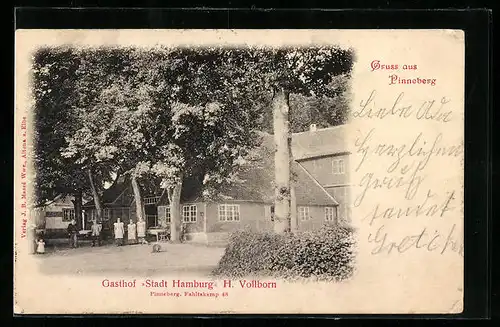 Gruss aus
Pinneberg
Liebe Ada
Herzlichen
Gruß
sendet
Gretchen
Gasthof »Stadt Hamburg« H. Vollborn
Pinneberg, Fahltskamp 48
Verlag J. B. Massé Wwe., Altona a. Elbe